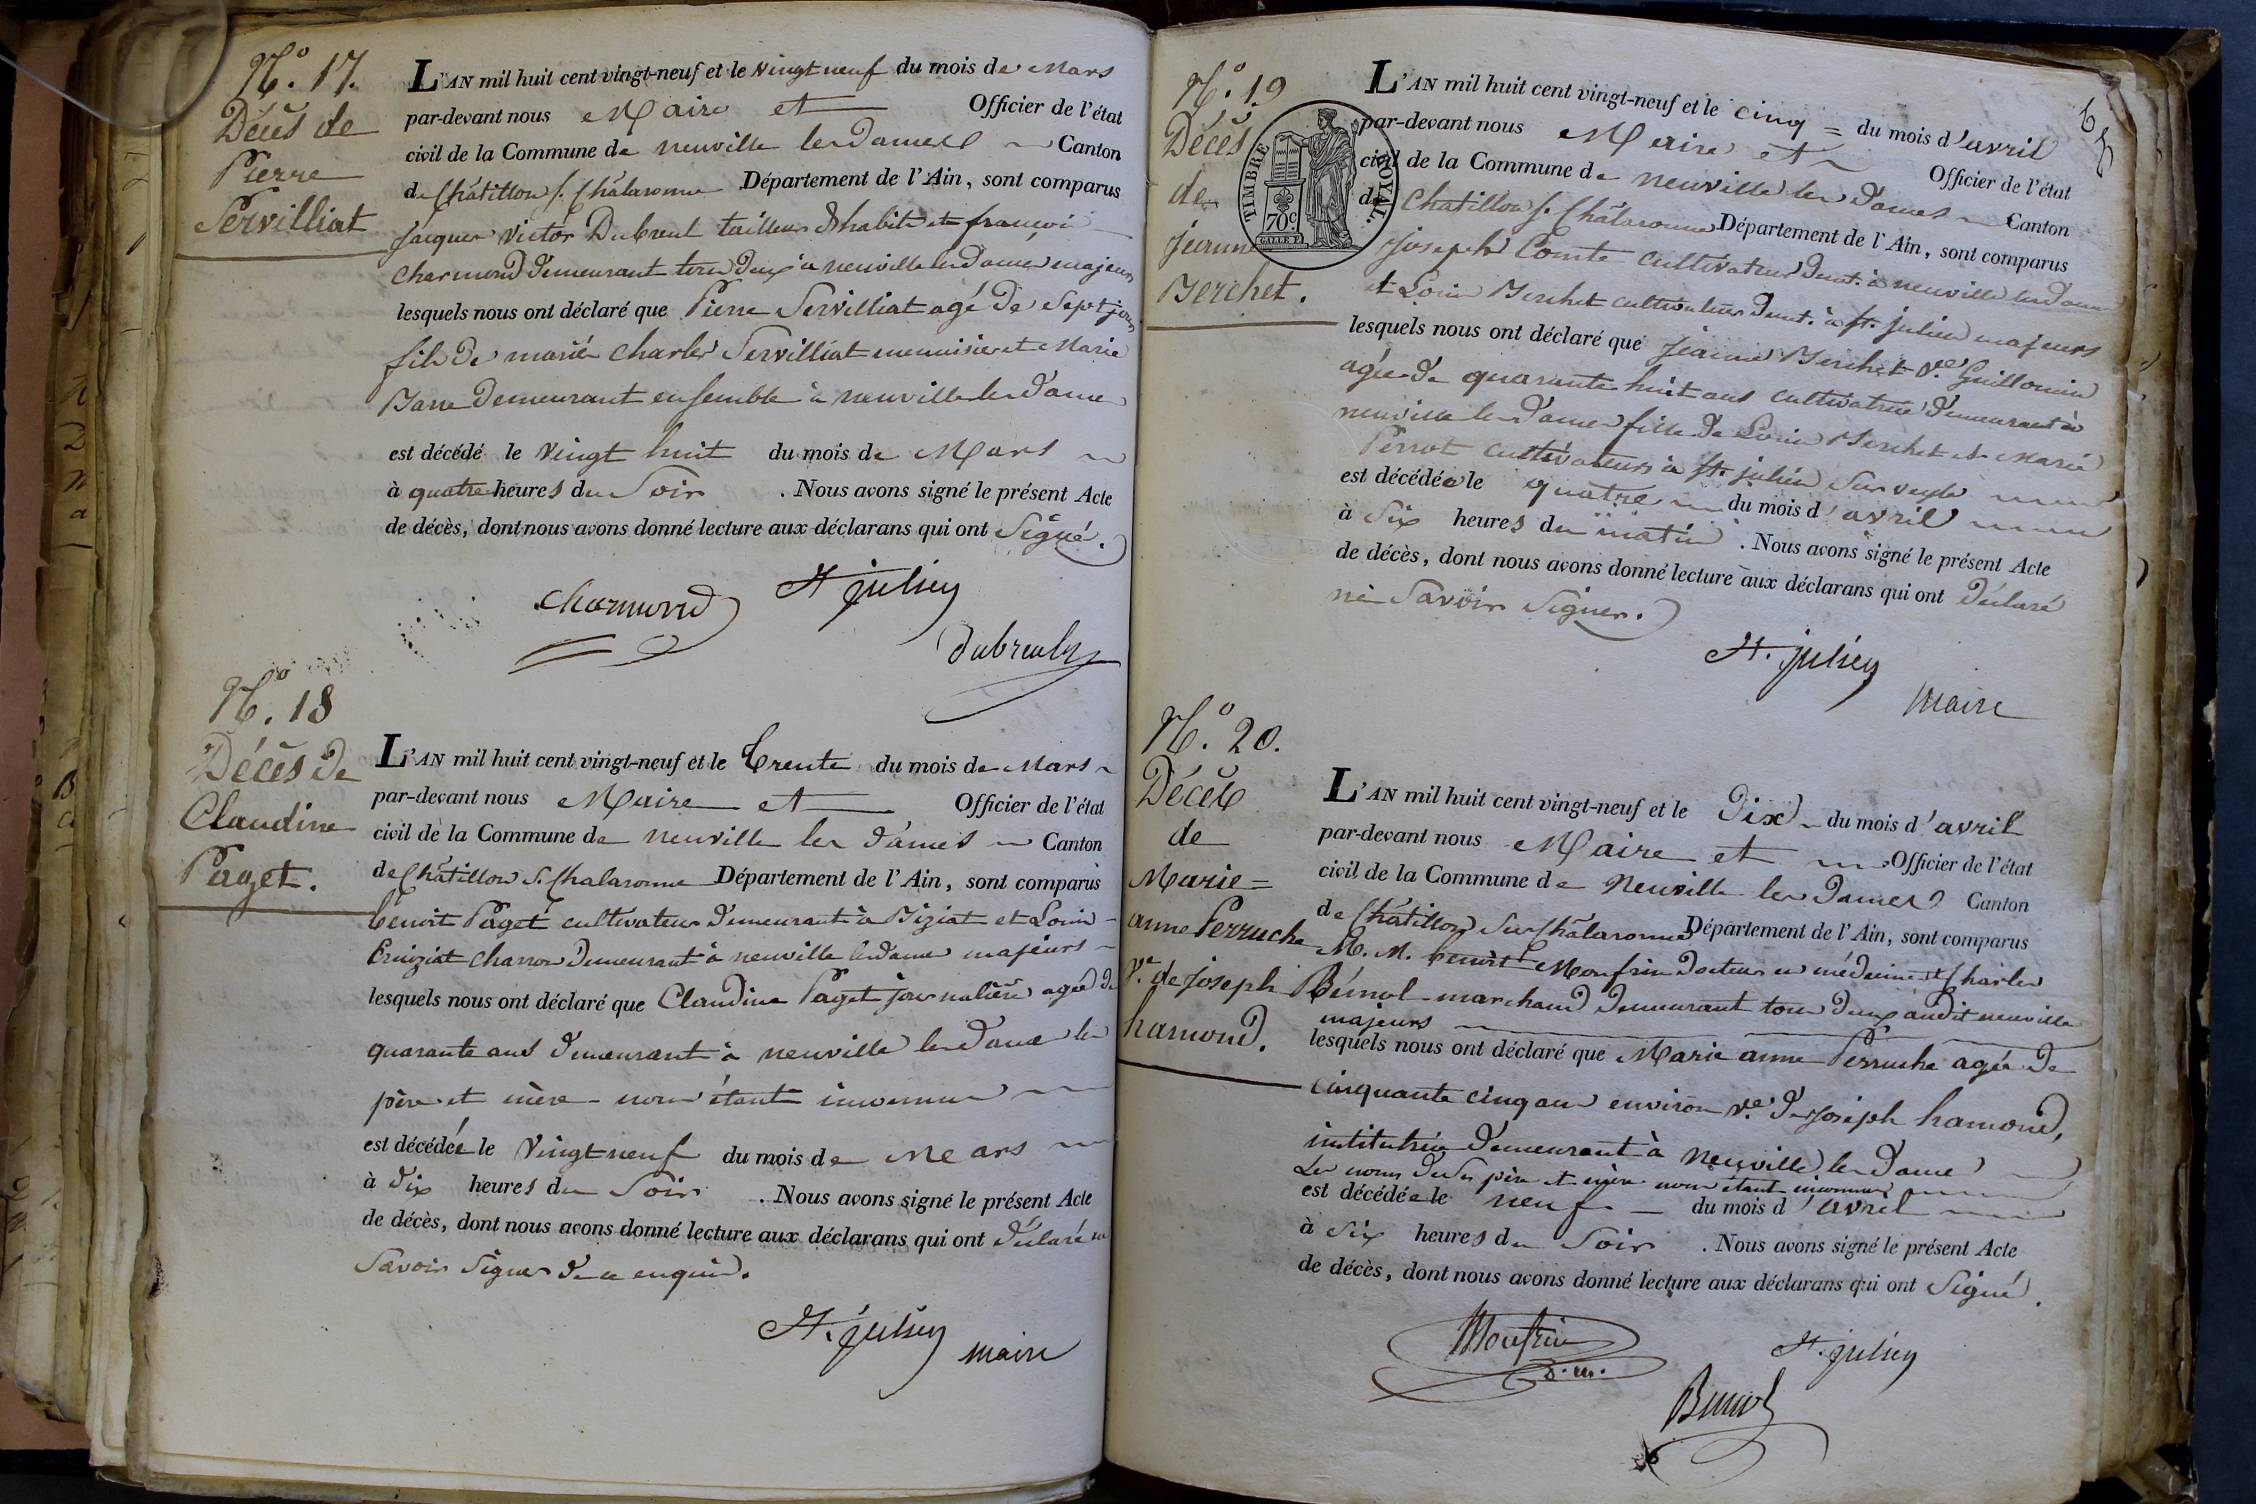 N.o 17.
Décès de
Pierre
Servilliat
L'AN mil huit cent vingt-neuf et le vingt neuf du mois de Mars
par-devant nous Maire et Officier de l'état
civil de la Commune de neuville les Dames Canton
de Châtillon s. Châlaronne Département de l'Ain, sont comparus
Jacques Victor Dubreul tailleur d'habits et françois
Charmond demeurant tous deux à neuville les dames majeurs
lesquels nous ont déclaré que Pierre Servilliat agé de Sept jours
fils de mariés Charles Servilliat menuisier et Marie
demeurant ensemble à neuville les dames
est décédé le Vingt huit du mois de Mars
à quatre heures du Soir . Nous avons signé le présent Acte
de décès, dont nous avons donné lecture aux déclarans qui ont Signé.
Charmond St julien
dubreul
N.o 18
Décès de
Claudine
Paget.
L'AN mil huit cent vingt-neuf et le trente du mois de Mars
par-devant nous Maire et Officier de l'état
civil de la Commune de neuville les dames Canton
de Châtillon s. Chalaronne Département de l'Ain, sont comparus
benoit Paget cultivateur demeurant à Biziat et Louis
charron demeurant à neuville les dames majeurs
lesquels nous ont déclaré que Claudine Paget journalière agée de
quarante ans demeurant à neuville les dames les
père et mère nous étant inconnus
est décédée le Vingt neuf du mois de Mars
à dix heures du Soir . Nous avons signé le présent Acte
de décès, dont nous avons donné lecture aux déclarans qui ont déclaré ne
Savoir Signer de ce enquis.
St. julien
maire
N.o 19
Décès
de
Jeanne
Berchet.
TIMBRE ROYAL.
70c.
L'AN mil huit cent vingt-neuf et le cinq du mois d'avril
par-devant nous Maire et Officier de l'état
civil de la Commune de neuville les dames Canton
de Chatillon s. Châlaronne Département de l'Ain, sont comparus
Joseph Comte cultivateur demt. à neuville les dames
et Louis Berchet cultivateur demt. à St. julien majeurs
lesquels nous ont déclaré que Jeanne Berchet Ve. Guillomin
agée de quarante huit ans cultivatrice demeurant à
neuville les dames fille de Louis Berchet et Marie
Perrot cultivateurs à St. julien Sur veyle
est décédée le quatre du mois d'avril
à Six heures du matin . Nous avons signé le présent Acte
de décès, dont nous avons donné lecture aux déclarans qui ont déclaré
ne Savoir Signer.
St. julien
maire
N.o 20.
Décès
de
Marie=
anne Perruche
Ve. de joseph
hamond.
L'AN mil huit cent vingt-neuf et le Dix du mois d'avril
par-devant nous Maire et Officier de l'état
civil de la Commune de Neuville les dames Canton
de Châtillon Sur Châlaronne Département de l'Ain, sont comparus
M. M. benoit Monfrin Docteur en médecine et Charles
marchand demeurant tous deux audit neuville
majeurs
lesquels nous ont déclaré que Marie anne Perruche agée de
Cinquante cinq ans environ Ve. de joseph hamond,
institutrice demeurant à Neuville les dames
Les noms de Ses père et mère nous étant inconnus
est décédée le neuf du mois d'avril
à Six heures du Soir . Nous avons signé le présent Acte
de décès, dont nous avons donné lecture aux déclarans qui ont Signé.
Monfrin
D. m.
St. julien